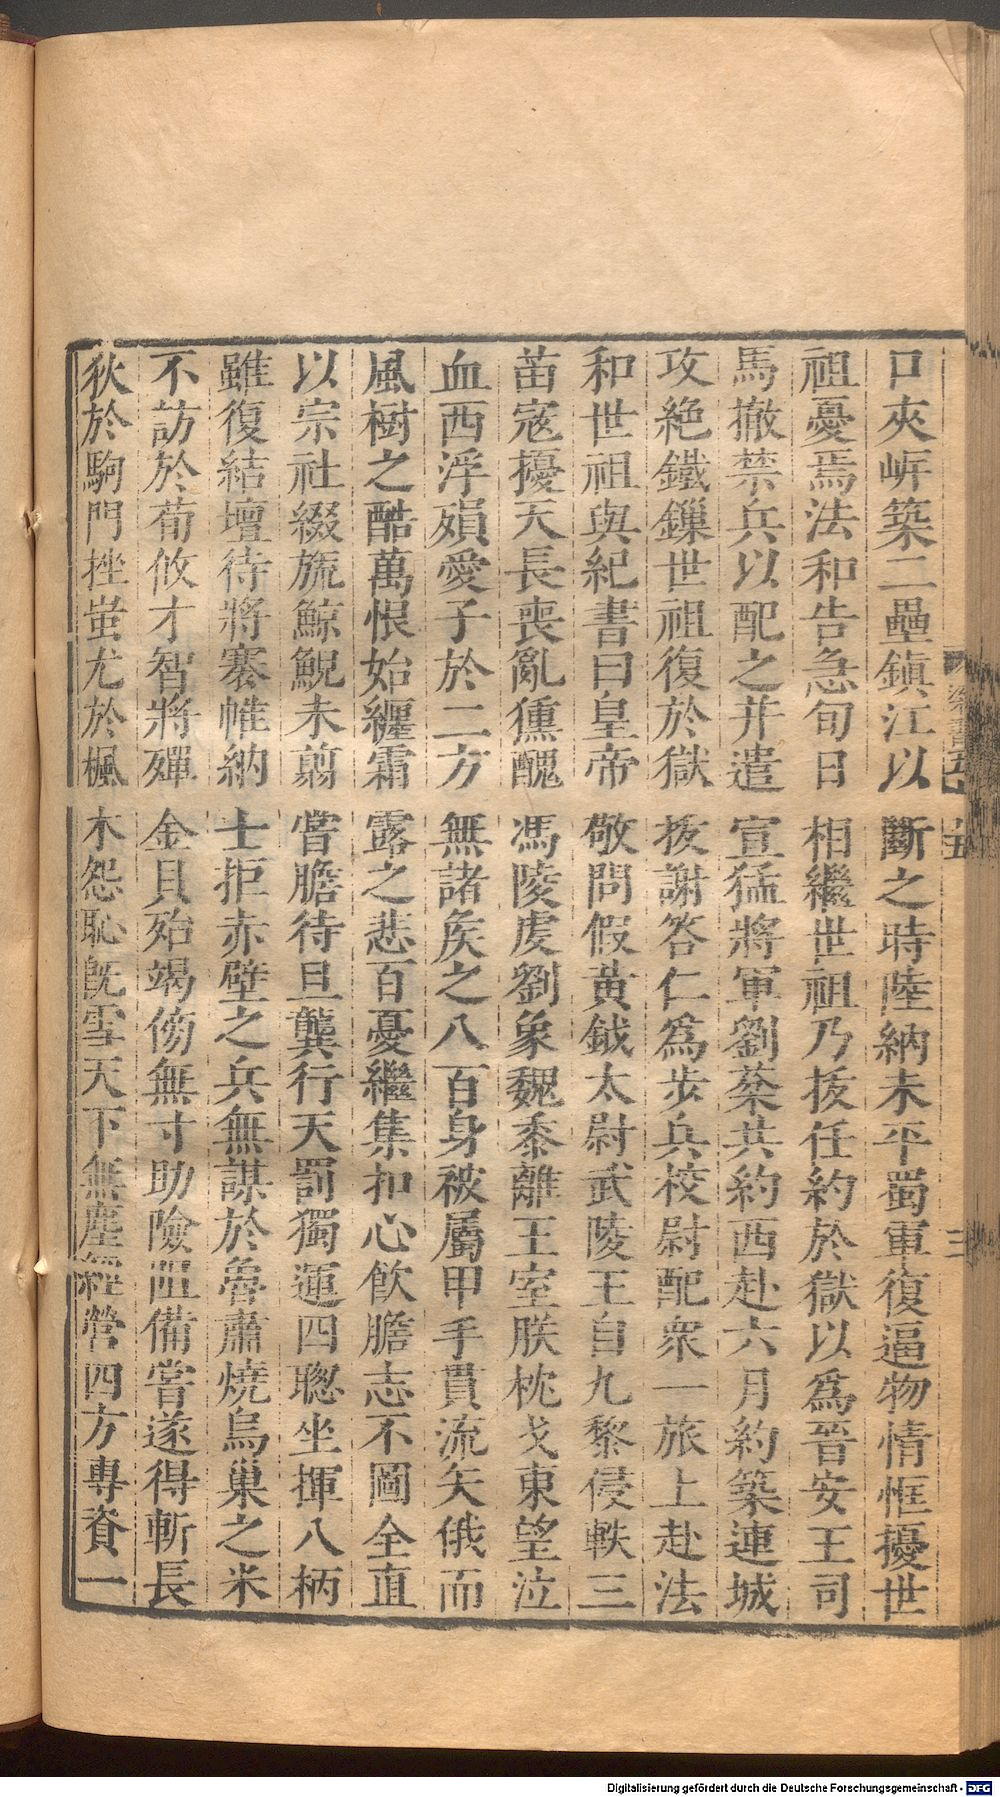 口夾岍築二壘鎮江以斷之時陸納未平蜀軍復逼物情恇擾世
祖憂焉法和告急旬日相繼世祖乃拔任約於獄以爲晉安王司
馬撤禁兵以配之并遣宣猛將軍劉棻共約西赴六月約築連城
攻絶鐵鏁世祖復於獄拔謝答仁爲步兵校尉配衆一旅上赴法
和世祖與紀書曰皇帝敬問假黃鉞太尉武陵王自九黎侵軼三
苗寇擾天長喪亂獯醜馮陵虔劉象魏黍離王室朕枕戈東望泣
血西浮殞愛子於二方無諸矦之八百身被屬甲手貫流矢俄而
風樹之酷萬恨始纏霜露之悲百憂繼集扣心飲膽志不圖全直
以宗社綴旒鯨鯢未翦嘗膽待旦龔行天罰獨運四聰坐揮八柄
雖復結壇待將褰帷納士拒赤壁之兵無謀於魯肅燒烏巢之米
不訪於荀攸才智將殫金貝殆竭傍無寸助險阻備嘗遂得斬長
狄於駒門挫蚩尤於楓木怨恥旣雪天下無塵經營四方專資一
Digitalisierung gefördert durch die Deutsche Forschungsgemeinschaft - DFG